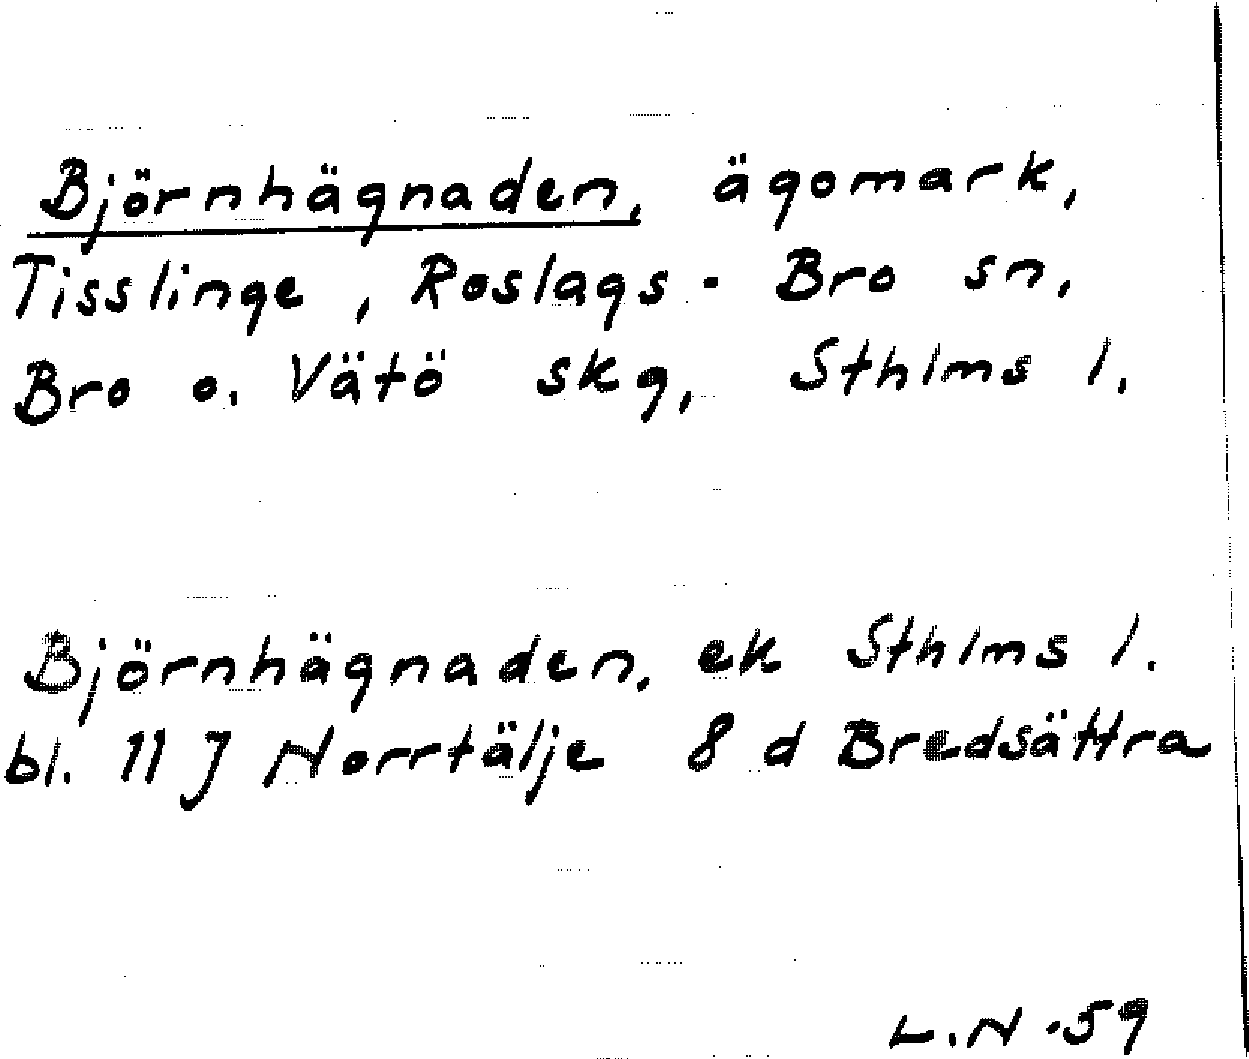 Björnhägnaden, ägomark,
Tisslinge, Roslags-Bro sn,
Bro o. Vätö skg, Sthlms l.
Björnhägnaden. ek Sthlms l.
bl. 11 J Norrtälje 8 d Bredsättra
L.N -59